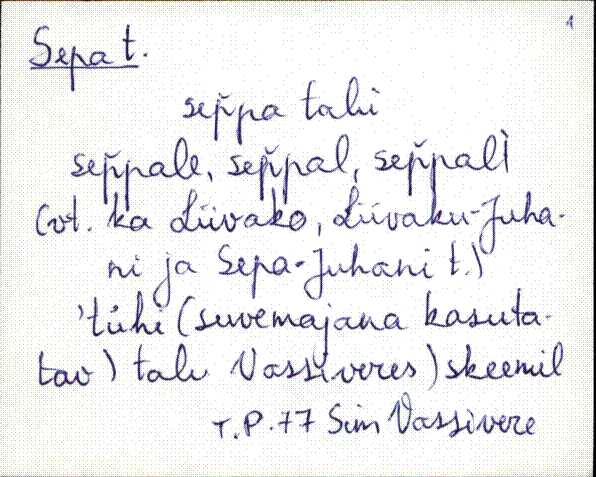 1
Sepa t.
sep̆pa talu
sep̆pale, sep̆pal, sep̆palt
(vt. ka Liivako, Liivaku-Juha-
ni ja Sepa-Juhani t.)
'tühi (suvemajana kasuta-
tav) talu Vassiveres) skeemil
T.P. 77 Sim Vassivere